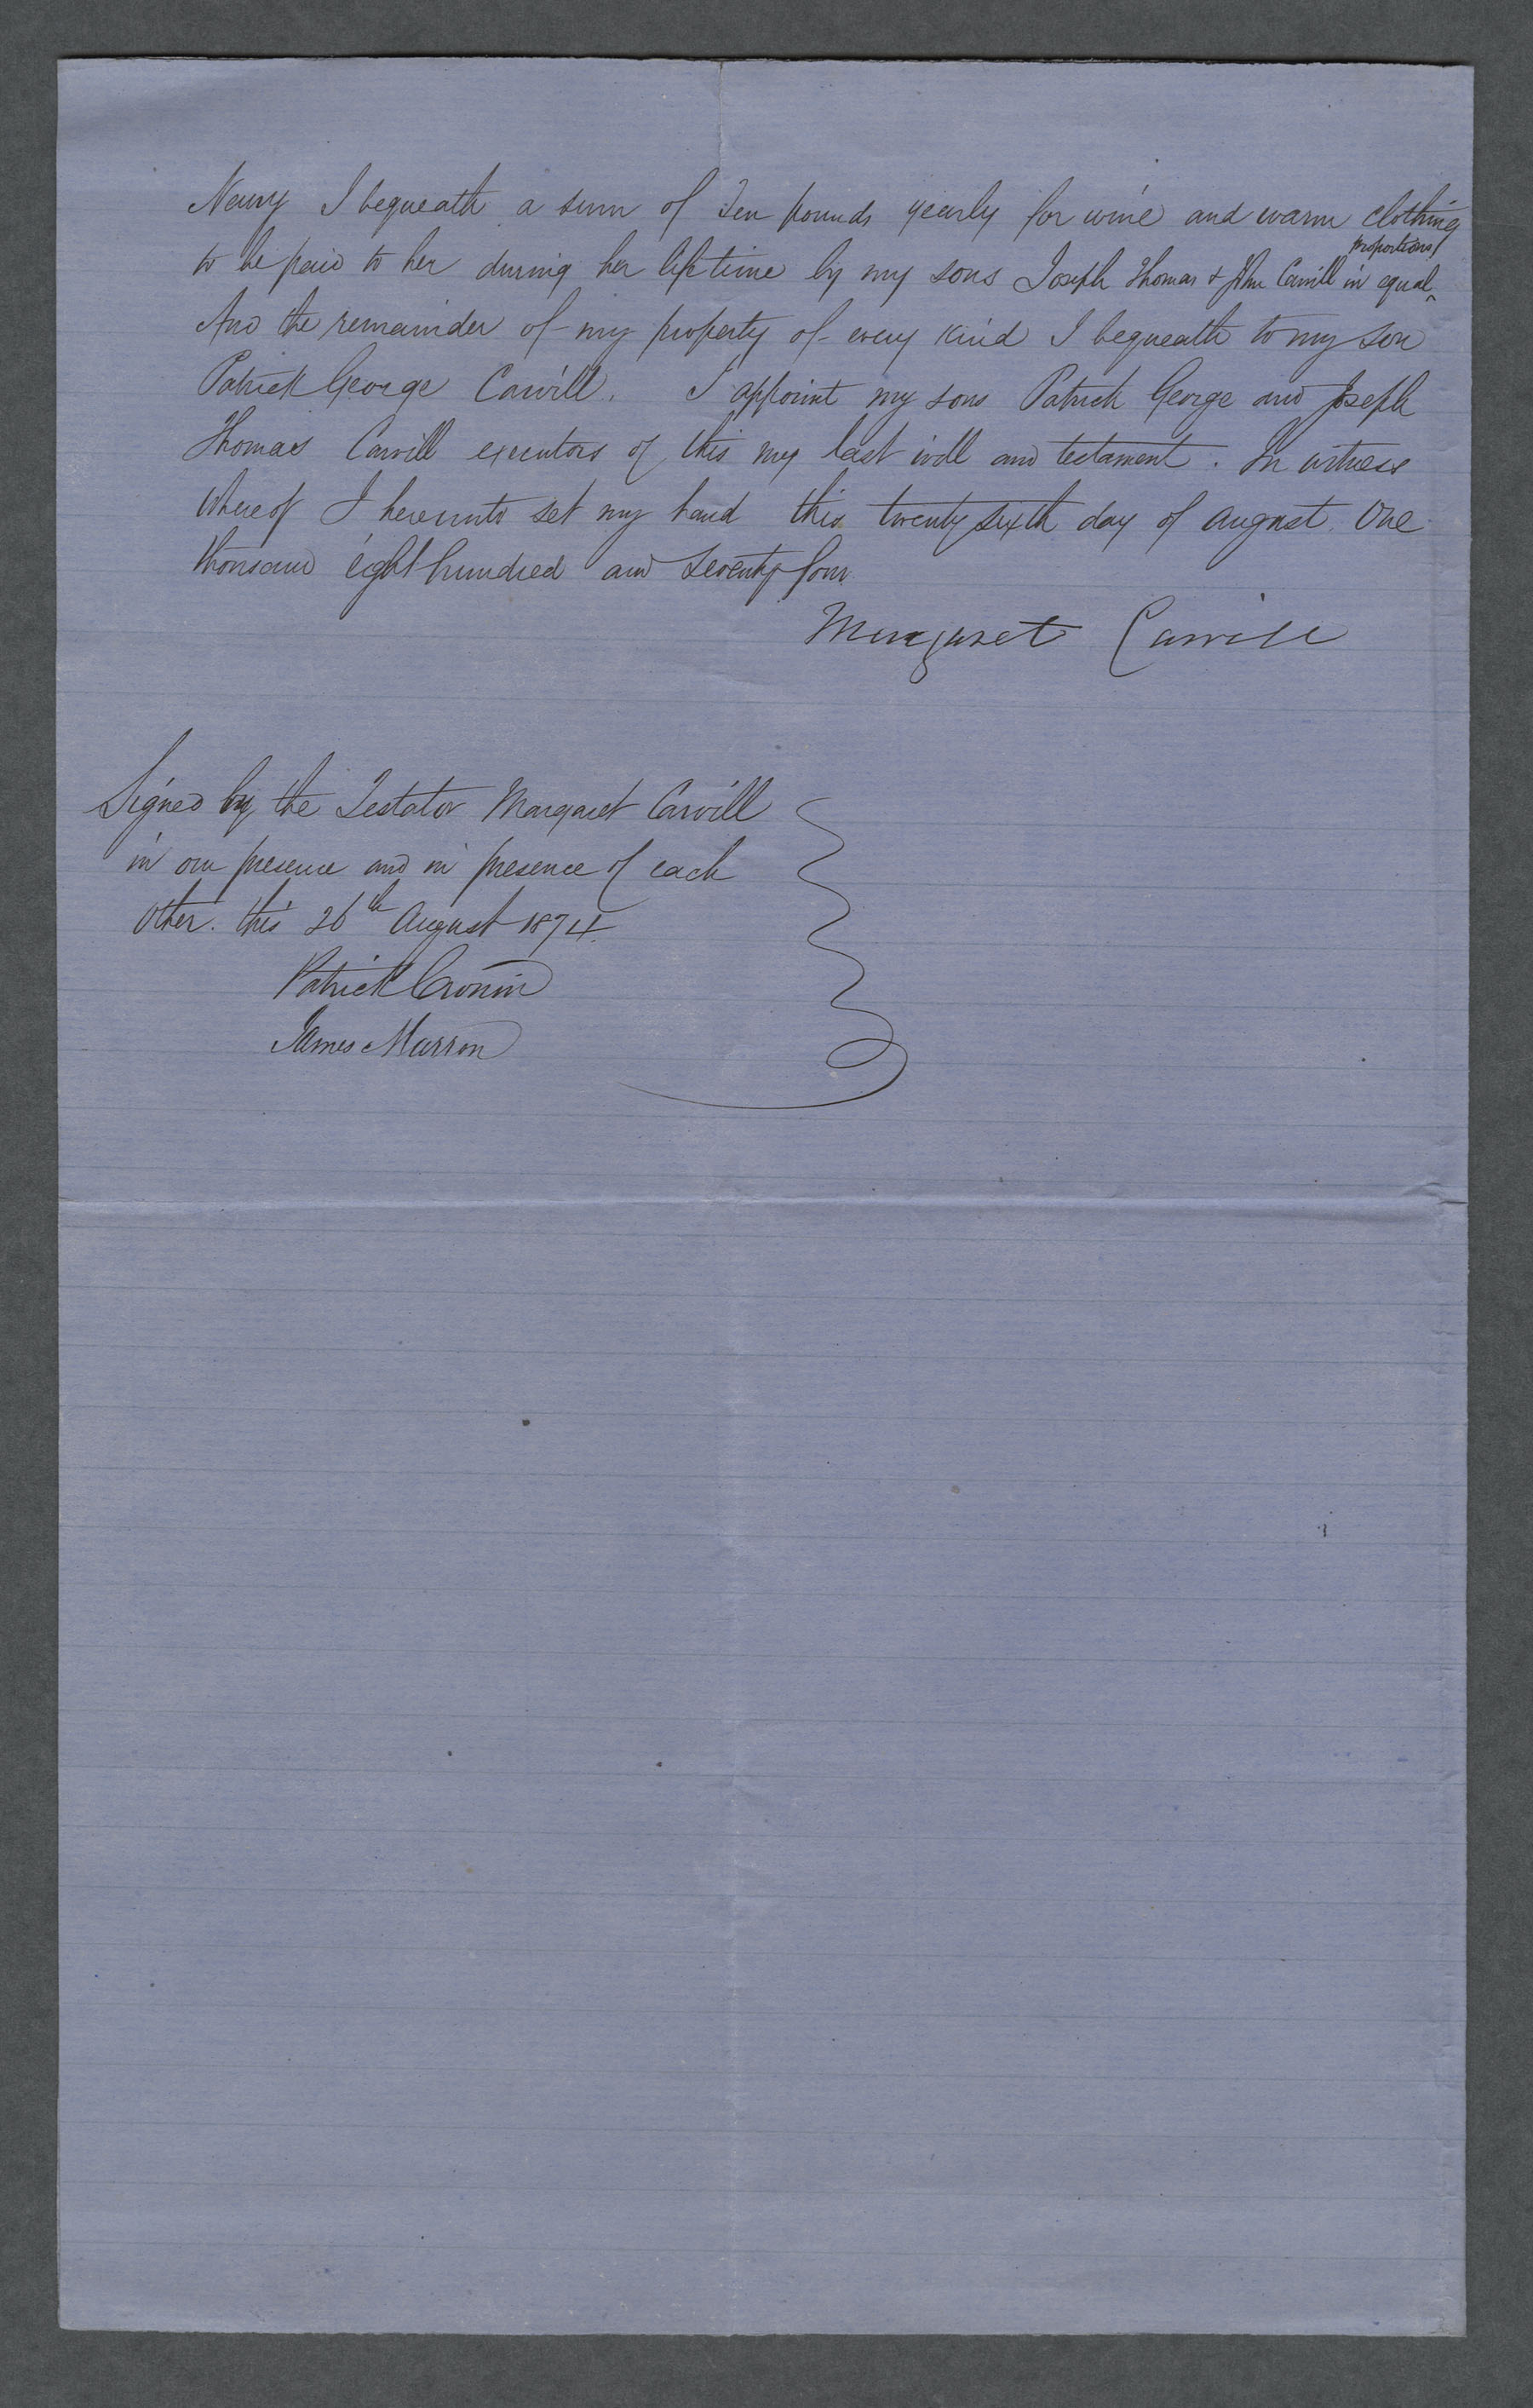 Newry I bequeath a sum of Ten pounds yearly for wine and warm clothing
to be paid to her during her lifetime by my sons Joseph Thomas & John Carvill in equal proportions
And the remainder of my property of every kind I bequeath to my son
Patrick George Carvill. I appoint my sons Patrick George and Joseph
Thomas Carvill executors of this my last will and testament. In witness
whereof I hereunto set my hand this twenty sixth day of August One
thousand eight hundred and seventy four
Margaret Carvill
Signed by the Testator Margaret Carvill
in our presence and in presence of each
other. this 26th August 1874.
Patrick Cronin
James Marron